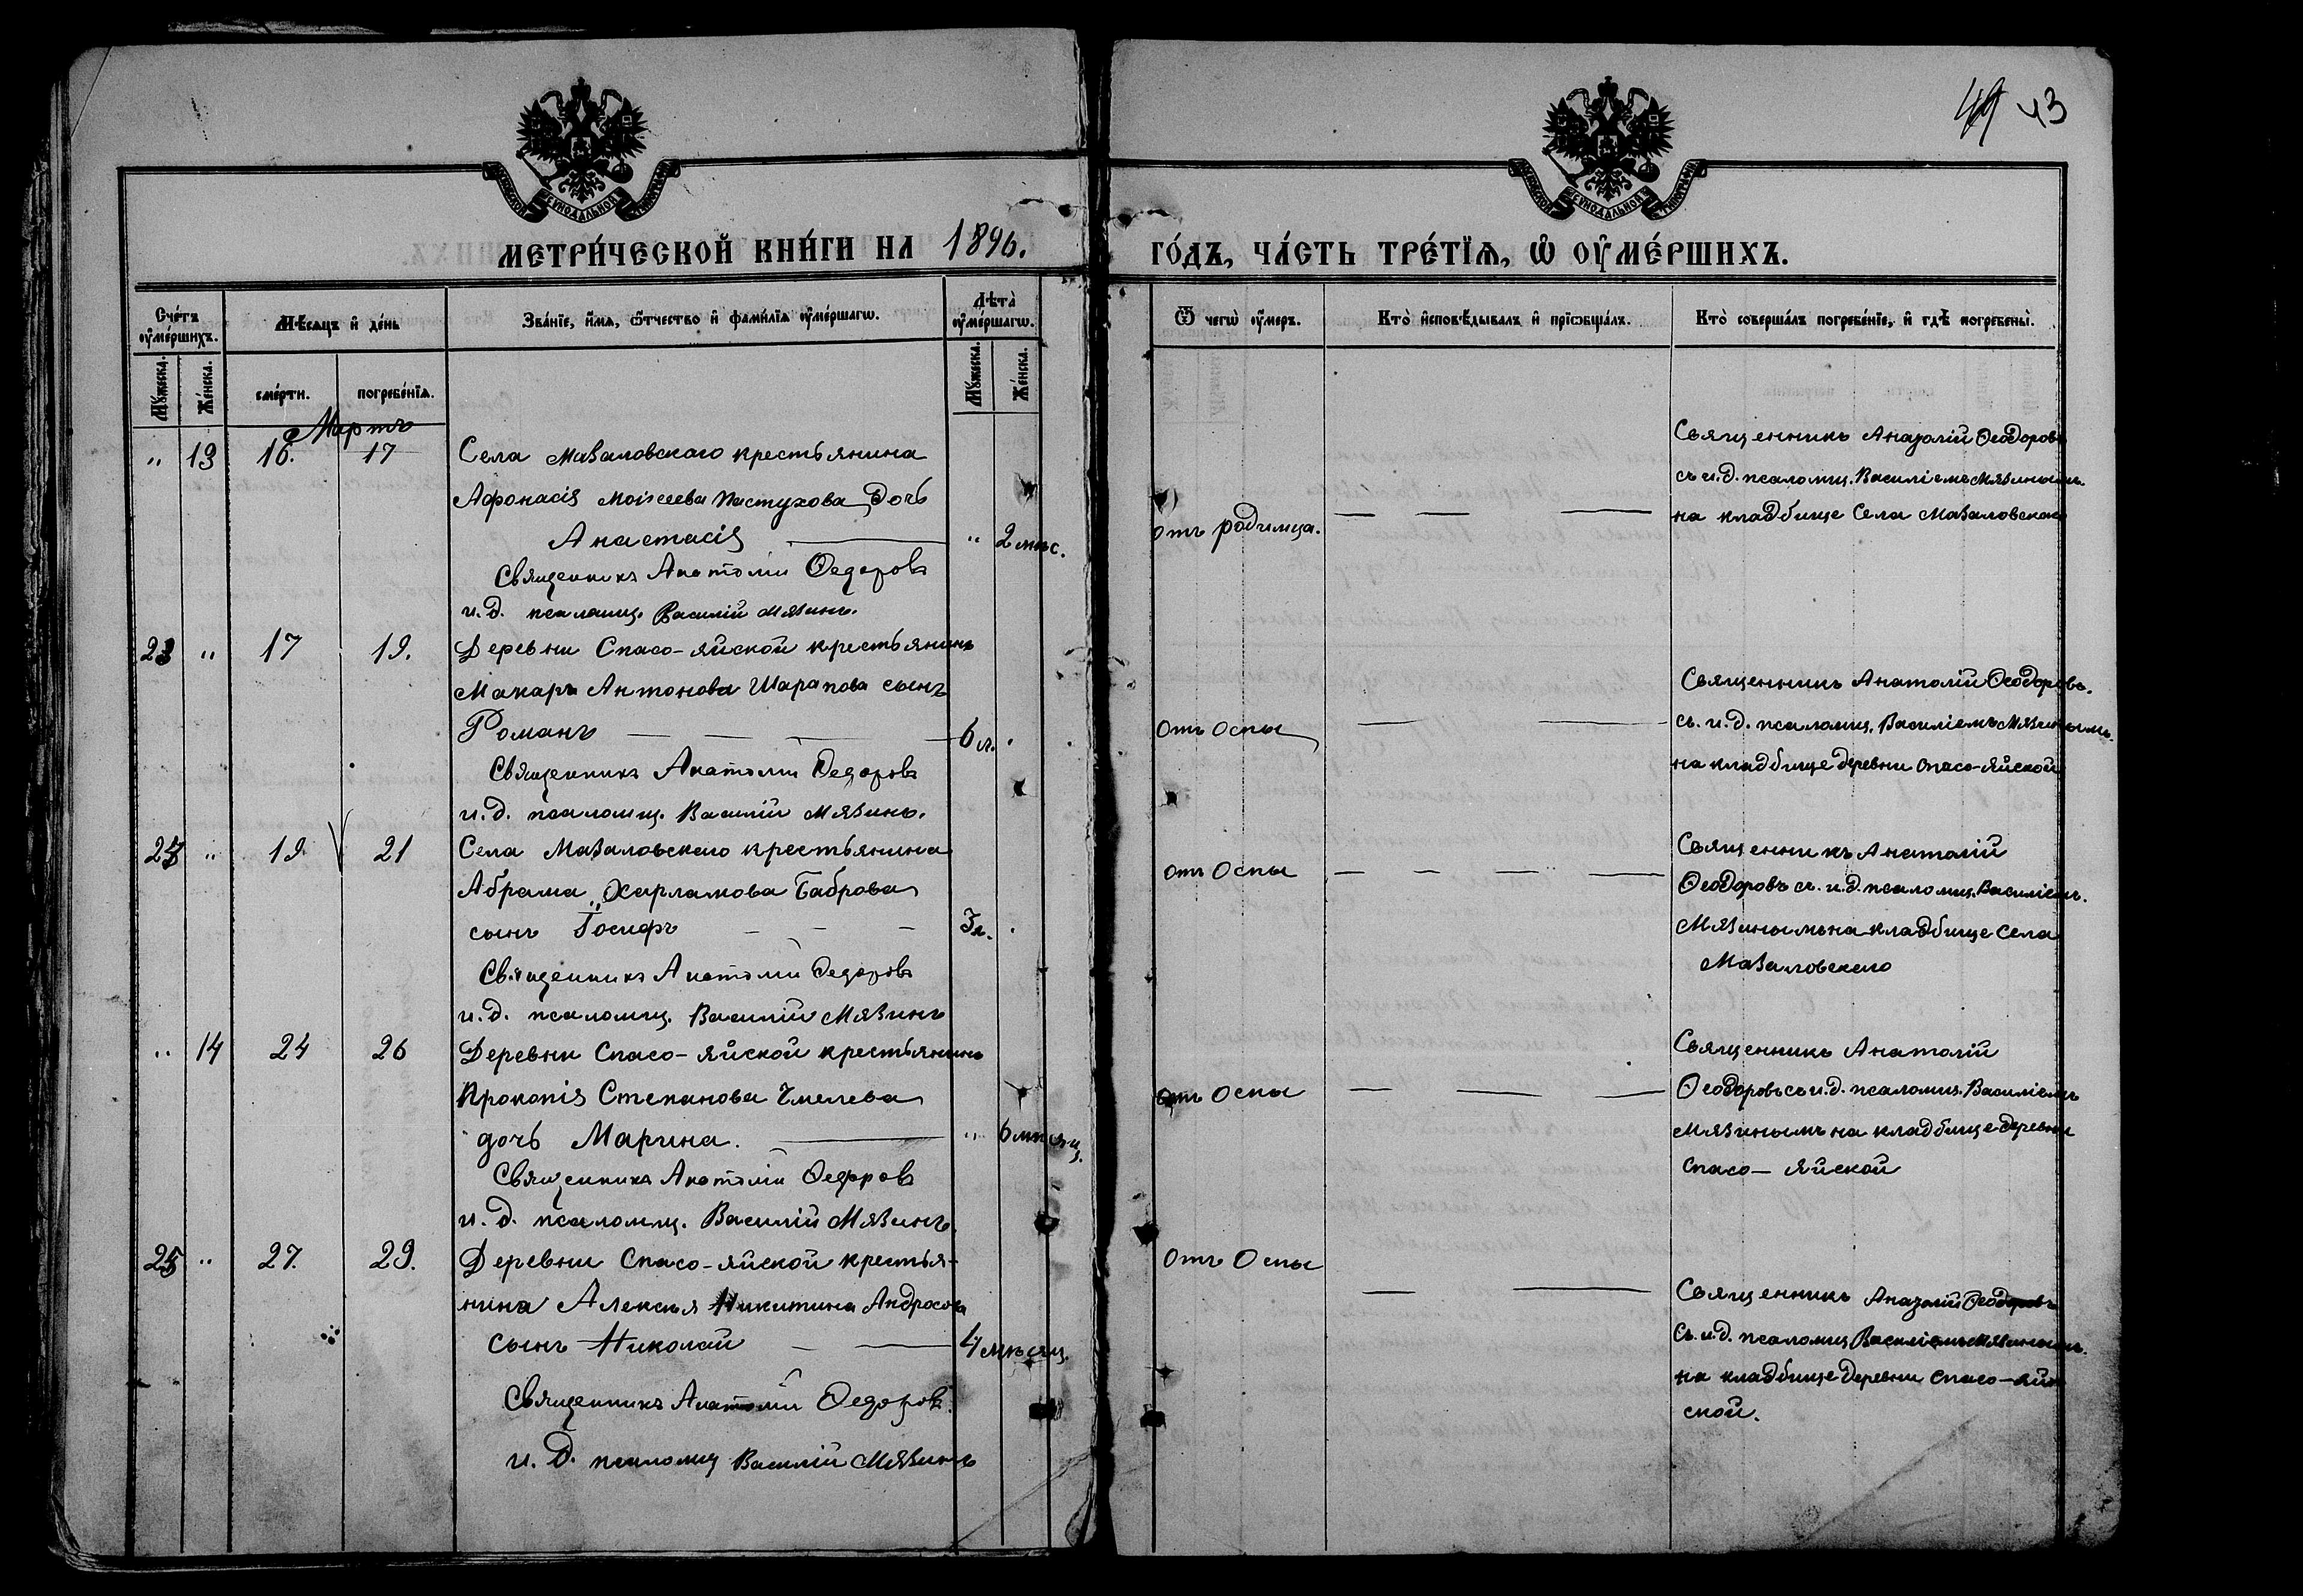 43
МЕТРИ́ЧЕСКОЙ КНИ́ГИ НА 1896.
ГО́ДЪ, ЧА́СТЬ ТРЕ́ТЇѦ, Ѡ҆ ОУ҆МЕ́РШИХЪ.
Сче́тъ оу҆ме́ршихъ.
Мꙋ́жеска.
Же́нска.
Мѣ́сѧцъ и҆ де́нь
сме́рти.
погребе́нїѧ.
Зва́нїе, и҆́мѧ, ѻ҆́тчество и҆ фами́лїѧ оу҆ме́ршагѡ.
Лѣ́та оу҆ме́ршагѡ.
Мꙋ́жеска.
Же́нска.
Ѿ чегѡ̀ оу҆́меръ.
Кто̀ и҆сповѣ́дывалъ и҆ прїѡбща́лъ.
Кто̀ соверша́лъ погребе́нїе, и҆ гдѣ̀ погребены̀.
Мартъ
" 13 16. 17 Села Мазаловскаго крестьянина
Афонасія Моісеева Пастухова дочь
Анастасія " 2 мѣс.
Священникъ Анатолій Ѳедоровъ
и.д. псаломщ. Василій Мязинъ.
отъ родимца.
Священникъ Анатолій Ѳеодоровъ
съ и.д. псаломщ. Василіемъ Мязинымъ.
на кладбище Села Мазаловскаго
23 " 17 19. Деревни Спасо-яйской крестьянинъ
Макара Антонова Шарапова сынъ
Романъ 6 л.
Священникъ Анатолій Ѳедоровъ
и.д. псаломщ. Василій Мязинъ.
Отъ Оспы
Священникъ Анатолій Ѳеодоровъ.
съ. и.д. псаломщ. Василіемъ Мязинымъ.
на кладбище деревни Спасо-Яйской
" 19 21 Села Мазаловскаго крестьянина
Абрама Харламова Баброва
сынъ Іосифъ 3 л.
Священникъ Анатолій Ѳедоровъ
и.д. псаломщ. Василій Мязинъ
отъ Оспы
Священникъ Анатолій
Ѳеодоровъ съ. и.д. псаломщ. Василіемъ.
Мязинымъ на кладбище Села
Мазаловскаго
" 14 24 26 Деревни Спасо-Яйской крестьянинъ
Прокопія Степанова Чмелева
дочь Марина. " 6 мѣсяц.
Священникъ Анатолій Ѳедоровъ
и.д. псаломщ. Василій Мязинъ.
отъ Оспы
Священникъ Анатолій
Ѳеодоровъ съ и.д. псаломщ. Василіемъ
Мязинымъ на кладбище деревни
Спасо-Яйской
25 " 27. 29. Деревни Спасо-яйской крестья-
нина Алексѣя Никитина Андросова
сынъ Николай 4 мѣсяц.
Священникъ Анатолій Ѳедоровъ.
и.д. псаломщ Василій Мязинъ
Отъ Оспы
Священникъ Анатолій Ѳеодоровъ
съ. и.д. псаломщ Василіемъ Мязинымъ.
на кладбище деревни Спасо-яй
ской.